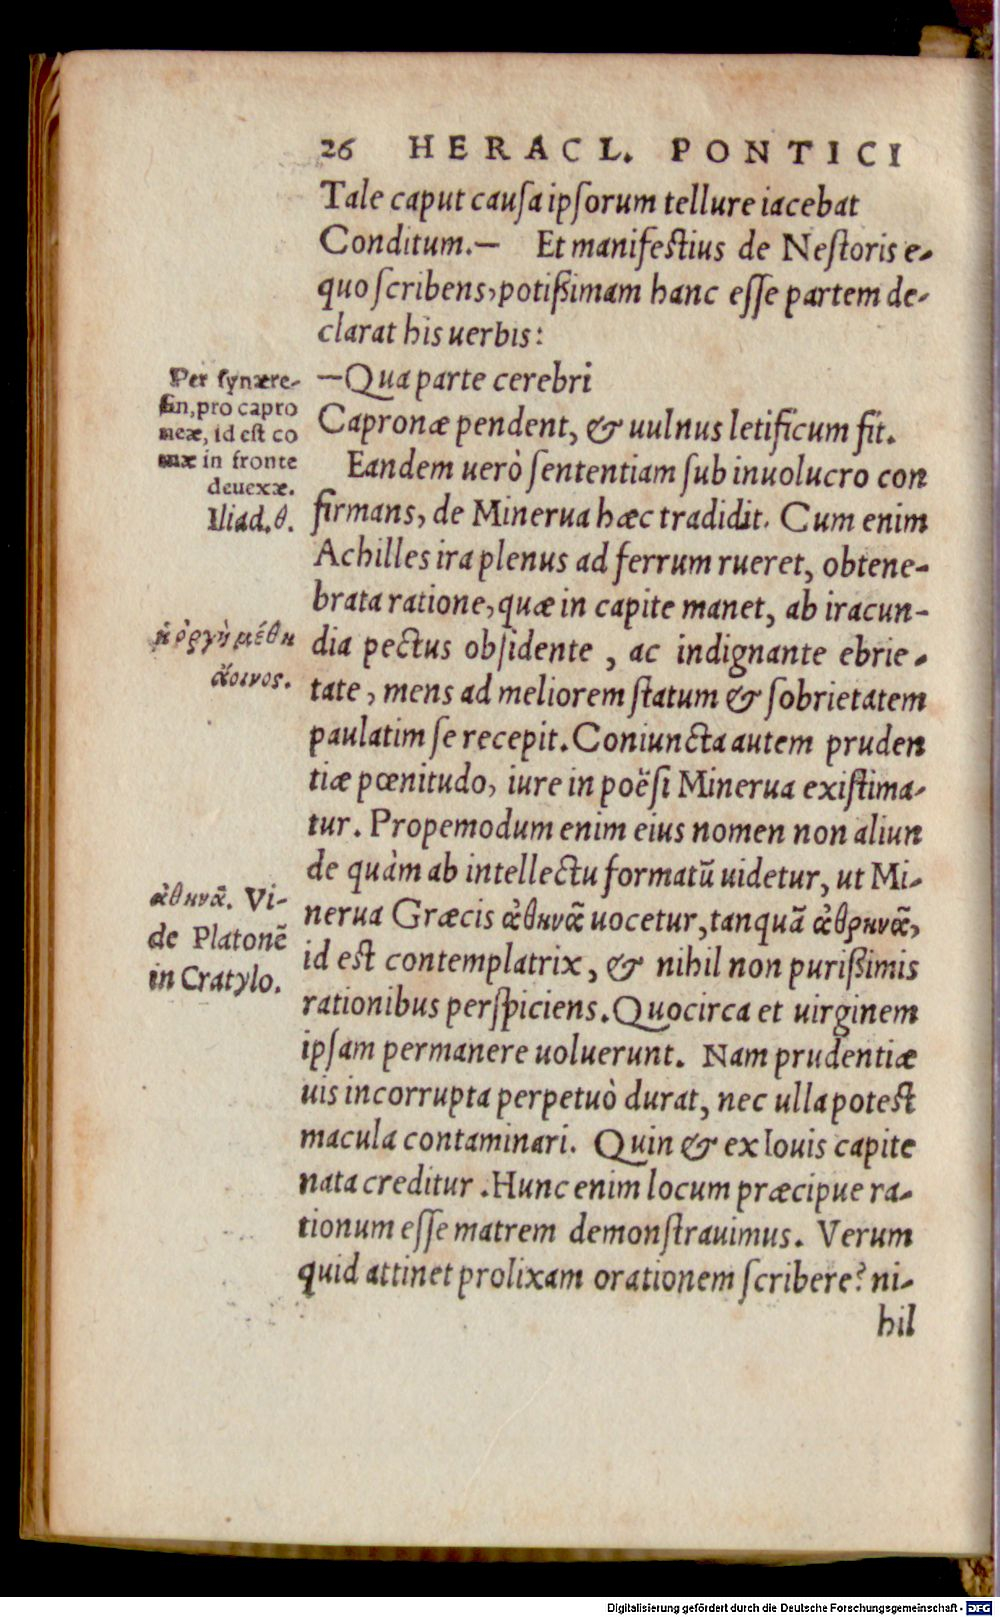 26 HERACL. PONTICI
Tale caput causa ipsorum tellure iacebat
Conditum.— Et manifestius de Nestoris e-
quo scribens, potißimam hanc esse partem de-
clarat his uerbis:
—Qua parte cerebri
Capronæ pendent, & uulnus letificum fit.
Eandem uerò sententiam sub inuolucro con
firmans, de Minerua hæc tradidit. Cum enim
Achilles ira plenus ad ferrum rueret, obtene-
brata ratione, quæ in capite manet, ab iracun-
dia pectus obsidente, ac indignante ebrie-
tate, mens ad meliorem statum & sobrietatem
paulatim se recepit. Coniuncta autem pruden
tiæ pœnitudo, iure in poësi Minerua existima-
tur. Propemodum enim eius nomen non aliun
de quàm ab intellectu formatũ uidetur, ut Mi-
nerua Græcis ἀθηνᾶ uocetur, tanquã ἀθρηνᾶ,
id est contemplatrix, & nihil non purißimis
rationibus perspiciens. Quocirca et uirginem
ipsam permanere uoluerunt. Nam prudentiæ
uis incorrupta perpetuò durat, nec ulla potest
macula contaminari. Quin & ex Iouis capite
nata creditur. Hunc enim locum præcipue ra-
tionum esse matrem demonstrauimus. Verum
quid attinet prolixam orationem scribere? ni-
hil
Per synære-
sin, pro capro
neæ, id est co
mæ in fronte
deuexæ.
Iliad. θ.
ἡ ὀργὴ μέθη
ἄοινος.
ἀθηνᾶ. Vi-
de Platonẽ
in Cratylo.
Digitalisierung gefördert durch die Deutsche Forschungsgemeinschaft - DFG